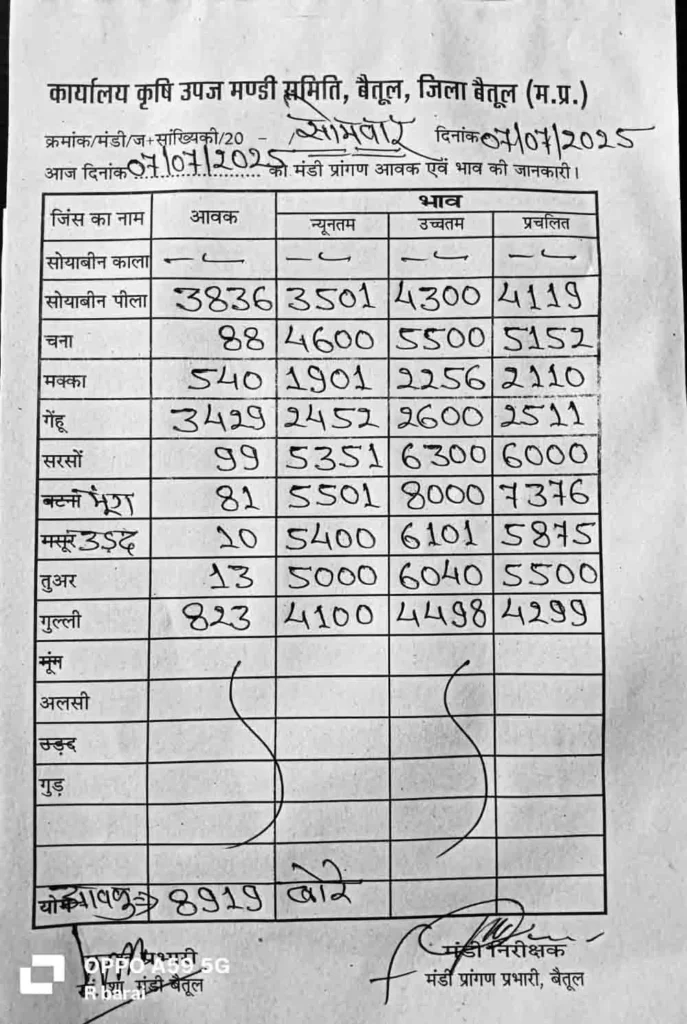 कार्यालय कृषि उपज मण्डी समिति, बैतूल, जिला बैतूल (म.प्र.)
क्रमांक/मंडी/ज+सांख्यिकी/20 - सोमवार दिनांक 07/07/2025
आज दिनांक 07/07/2025 को मंडी प्रांगण आवक एवं भाव की जानकारी।
जिंस का नाम आवक भाव
न्यूनतम उच्चतम प्रचलित
सोयाबीन काला
सोयाबीन पीला 3836 3501 4300 4119
चना 88 4600 5500 5152
मक्का 540 1901 2256 2110
गेंहू 3429 2452 2600 2511
सरसों 99 5351 6300 6000
बटना मूंग 81 5501 8000 7376
मसूर उड़द 10 5400 6101 5875
तुअर 13 5000 6040 5500
गुल्ली 823 4100 4498 4299
मूंग
अलसी
उड़द
गुड़
योग आवक => 8919 बोरे
प्रभारी मंडी निरीक्षक
मंडी बैतूल मंडी प्रांगण प्रभारी, बैतूल
OPPO A59 5G
R barai